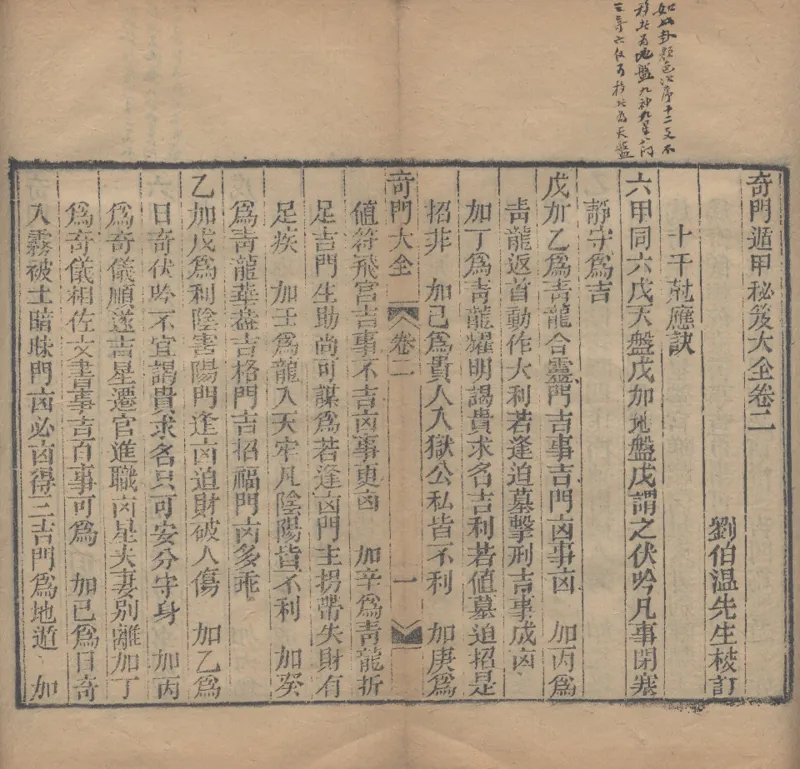 如以卦類色次序十二支不
移北為地盤九神九星八門
三奇六仪可移北為天盤
奇門遁甲秘笈大全卷二
劉伯温先生校訂
十干尅應訣
六甲同六戊天盤戊加地盤戊謂之伏吟凡事閉塞
靜守為吉
戊加乙為青龍合靈門吉事吉門凶事凶 加丙為
青龍返首動作大利若逢迫墓擊刑吉事成凶
加丁為青龍耀明謁貴求名吉利若值墓迫招是
招非 加己為貴人入獄公私皆不利 加庚為
奇門大全 卷二 一
值符飛宮吉事不吉凶事更凶 加辛為青龍折
足吉門生助尚可謀為若逢凶門主拐帶失財有
足疾 加壬為龍入天牢凡陰陽皆不利 加癸
為青龍華蓋吉格門吉招福門凶多乖
乙加戊為利陰害陽門逢凶迫財破人傷 加乙為
日奇伏吟不宜謁貴求名只可安分守身 加丙
為奇儀順遂吉星遷官進職凶星夫妻別離加丁
為奇儀相佐文書事吉百事可為 加己為日奇
入霧被土暗昧門凶必凶得三吉門為地遁 加